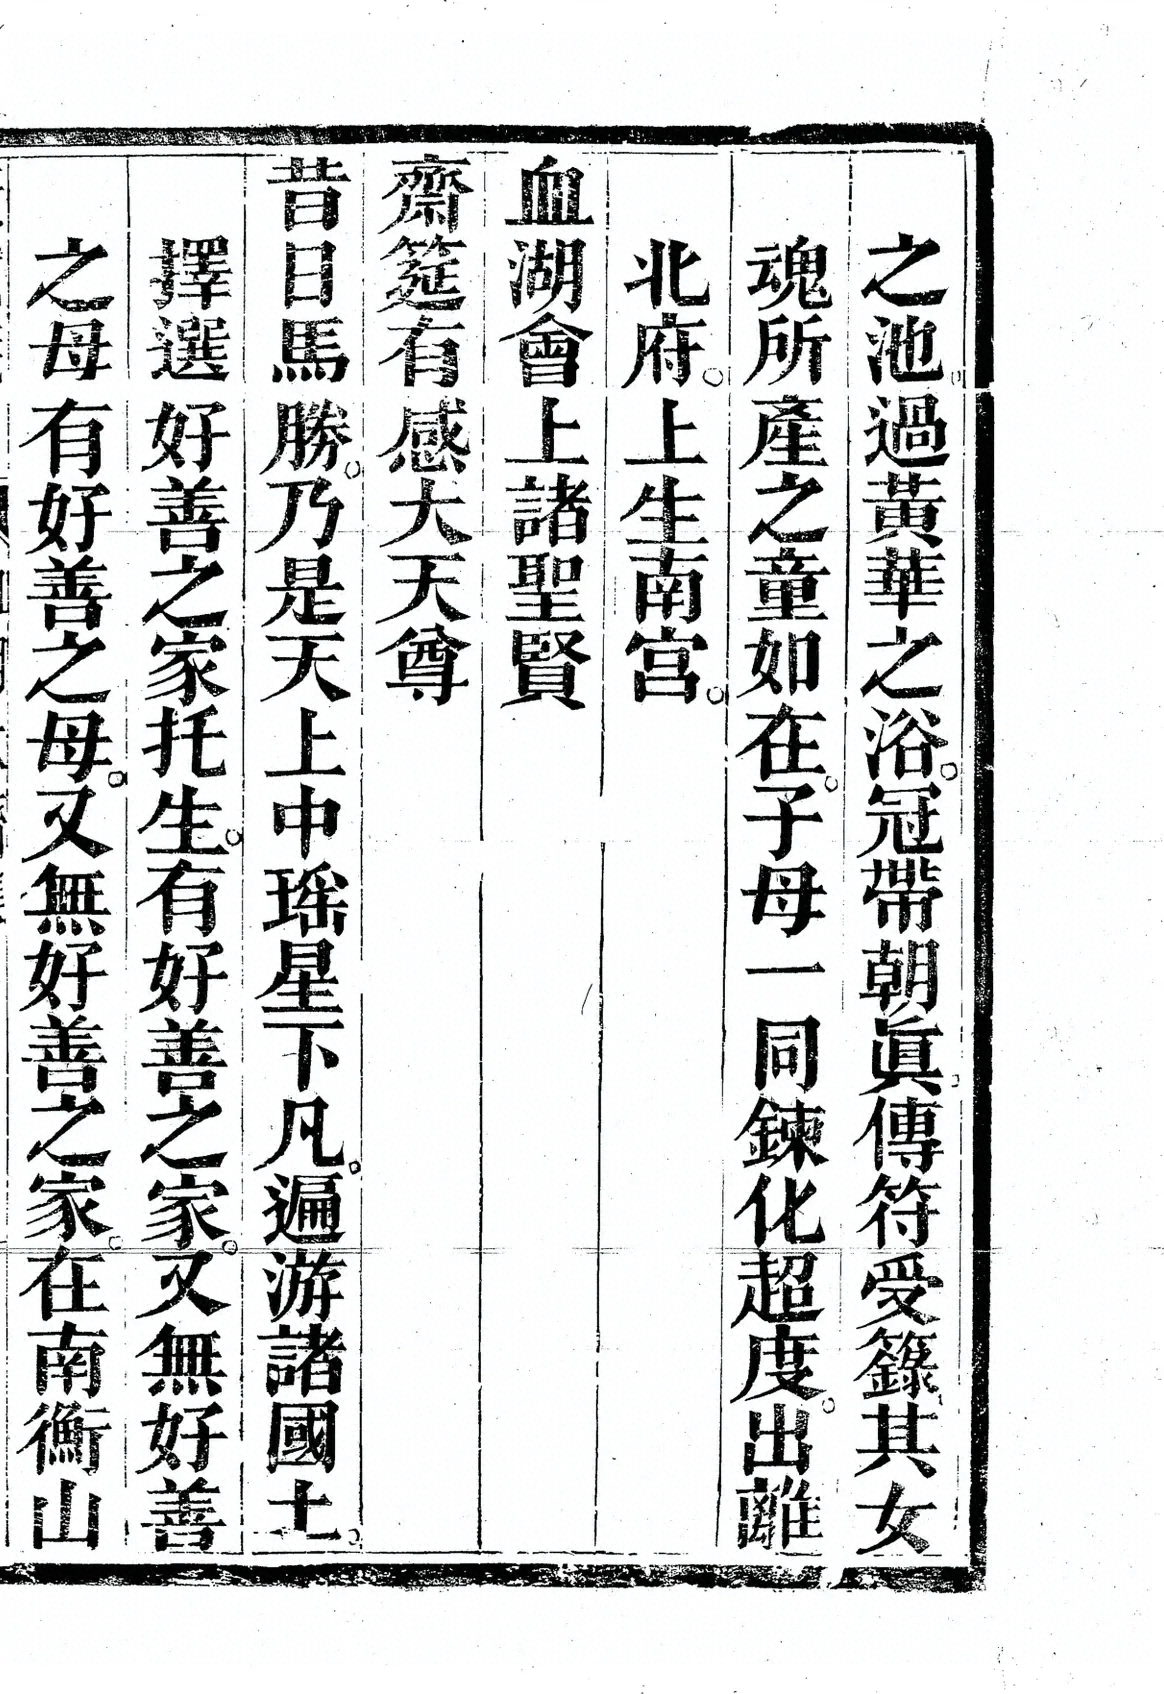 之池。過黃華之浴。冠帶朝眞。傳符受籙。其女
魂所產之童如在。子母一同鍊化超度。出離
北府。上生南宮。
血湖會上諸聖賢
齋筵有感大天尊
昔日馬勝。乃是天上中瑶星下凡。遍游諸國土。
擇選好善之家托生。有好善之家。又無好善
之母有好善之母。又無好善之家。在南衡山